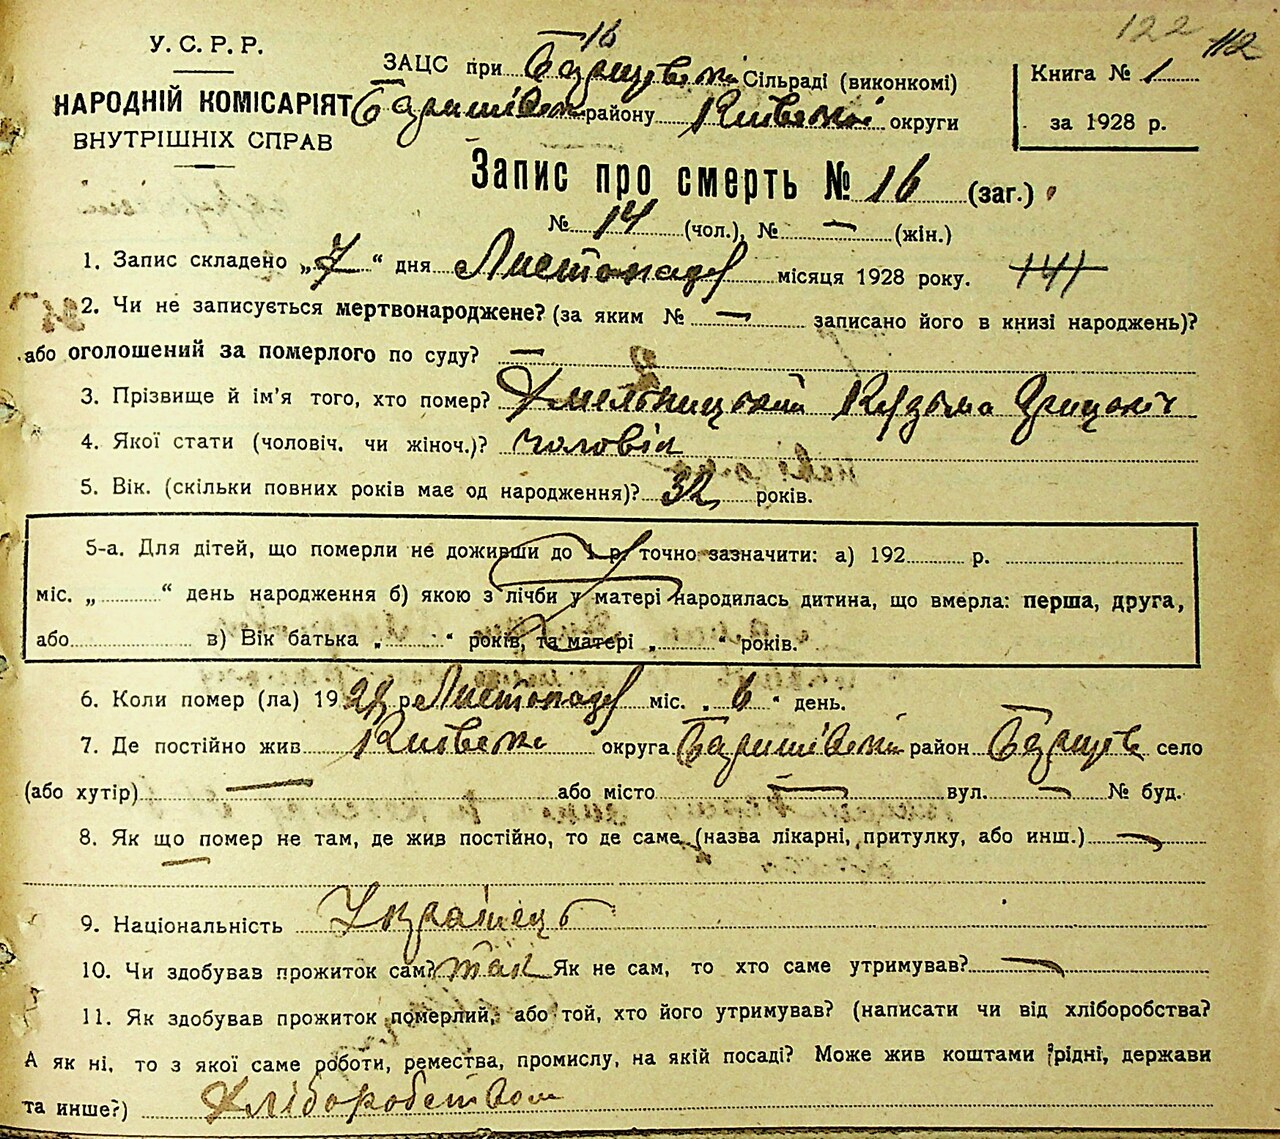 122 112
16
У. С. Р. Р.
НАРОДНІЙ КОМІСАРІЯТ
ВНУТРІШНІХ СПРАВ
ЗАЦС при Сільраді (виконкомі)
Баришівськ. району Київської округи
Книга № 1
за 1928 р.
Запис про смерть № 16 (заг.)
№ 14 (чол.), № — (жін.)
1. Запис складено „7“ дня Листопада місяця 1928 року. 141
2. Чи не записується мертвонароджене? (за яким № — записано його в книзі народжень)?
або оголошений за померлого по суду? —
3. Прізвище й ім'я того, хто помер? Хмельницький Кузьма Грицьків
4. Якої стати (чоловіч. чи жіноч.)? чоловіч
5. Вік. (скільки повних років має од народження)? 32 років.
5-а. Для дітей, що померли не доживши до 1 р. точно зазначити: а) 192 р.
міс. „ “ день народження б) якою з лічби у матері народилась дитина, що вмерла: перша, друга,
або в) Вік батька „ “ років, та матері „ “ років.
6. Коли помер (ла) 1928 р. Листопада міс. „6“ день.
7. Де постійно жив Київської округа Баришівській район село
(або хутір) — або місто — вул. — № буд.
8. Як що помер не там, де жив постійно, то де саме (назва лікарні, притулку, або инш.) —
—
9. Національність Українець
10. Чи здобував прожиток сам? так Як не сам, то хто саме утримував? —
11. Як здобував прожиток померлий, або той, хто його утримував? (написати чи від хліборобства?
А як ні, то з якої саме роботи, ремества, промислу, на якій посаді? Може жив коштами рідні, держави
та инше?) Хліборобством